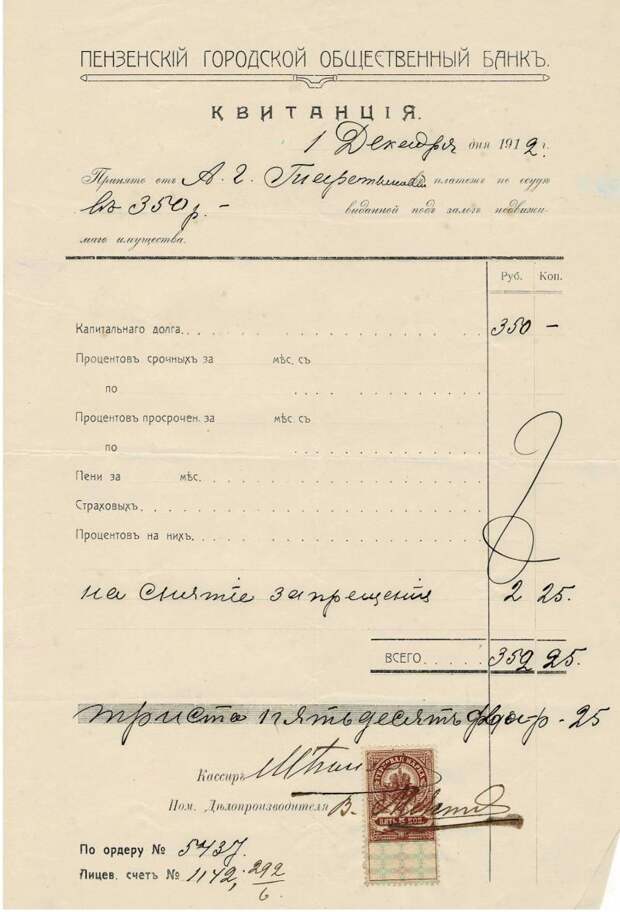 ПЕНЗЕНСКІЙ ГОРОДСКОЙ ОБЩЕСТВЕННЫЙ БАНКЪ.
КВИТАНЦІЯ.
1 Декабря дня 1912 г.
Принято отъ А. Г. платежъ по ссудѣ
въ 350 р. - выданной подъ залогъ недвижи-
маго имущества.
Руб. Коп.
Капитальнаго долга 350 -
Процентовъ срочныхъ за мѣс. съ
по
Процентовъ просрочен. за мѣс. съ
по
Пени за мѣс.
Страховыхъ
Процентовъ на нихъ
на снятіе запрещенія 2 25.
ВСЕГО 352 25.
триста пятьдесятъ два р - 25
Кассиръ
Пом. Дѣлопроизводителя В.
ГЕРБОВАЯ МАРКА
ПЯТЬ КОП.
По ордеру № 5437.
Лицев. счетъ № 1142, 292/6.